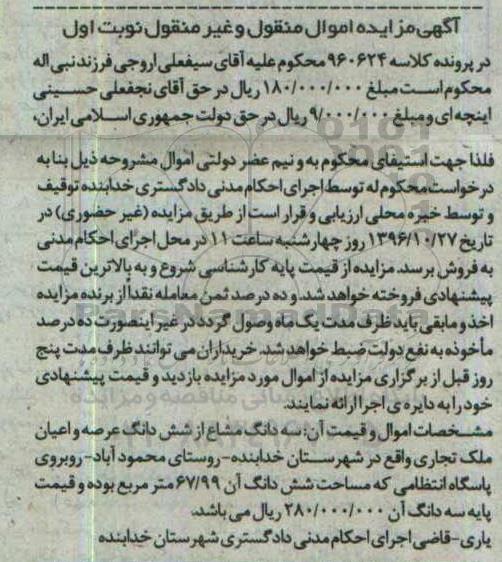 آگهی مزایده اموال منقول و غیر منقول نوبت اول
در پرونده کلاسه ۹۶۰۶۲۴ محکوم علیه آقای سیفعلی اروجی فرزند نبی اله
محکوم است مبلغ ۱۸۰/۰۰۰/۰۰۰ ریال در حق آقای نجفعلی حسینی
اینچه ای و مبلغ ۹/۰۰۰/۰۰۰ ریال در حق دولت جمهوری اسلامی ایران،
فلذا جهت استیفای محکوم به و نیم عضر دولتی اموال مشروحه ذیل بنا به
درخواست محکوم له توسط اجرای احکام مدنی دادگستری خدابنده توقیف
و توسط خبره محلی ارزیابی و قرار است از طریق مزایده (غیر حضوری) در
تاریخ ۱۳۹۶/۱۰/۲۷ روز چهارشنبه ساعت ۱۱ در محل اجرای احکام مدنی
به فروش برسد. مزایده از قیمت پایه کارشناسی شروع و به بالاترین قیمت
پیشنهادی فروخته خواهد شد. و ده درصد ثمن معامله نقداً از برنده مزایده
اخذ و مابقی باید ظرف مدت یک ماه وصول گردد در غیر اینصورت ده درصد
مأخوذه به نفع دولت ضبط خواهد شد. خریداران می توانند ظرف مدت پنج
روز قبل از برگزاری مزایده از اموال مورد مزایده بازدید و قیمت پیشنهادی
خود را به دایره ی اجرا ارائه نمایند.
مشخصات اموال و قیمت آن: سه دانگ مشاع از شش دانگ عرصه و اعیان
ملک تجاری واقع در شهرستان خدابنده-روستای محمود آباد-روبروی
پاسگاه انتظامی که مساحت شش دانگ آن ۶۷/۹۹ متر مربع بوده و قیمت
پایه سه دانگ آن ۲۸۰/۰۰۰/۰۰۰ ریال می باشد.
یاری-قاضی اجرای احکام مدنی دادگستری شهرستان خدابنده
ParsNamadData